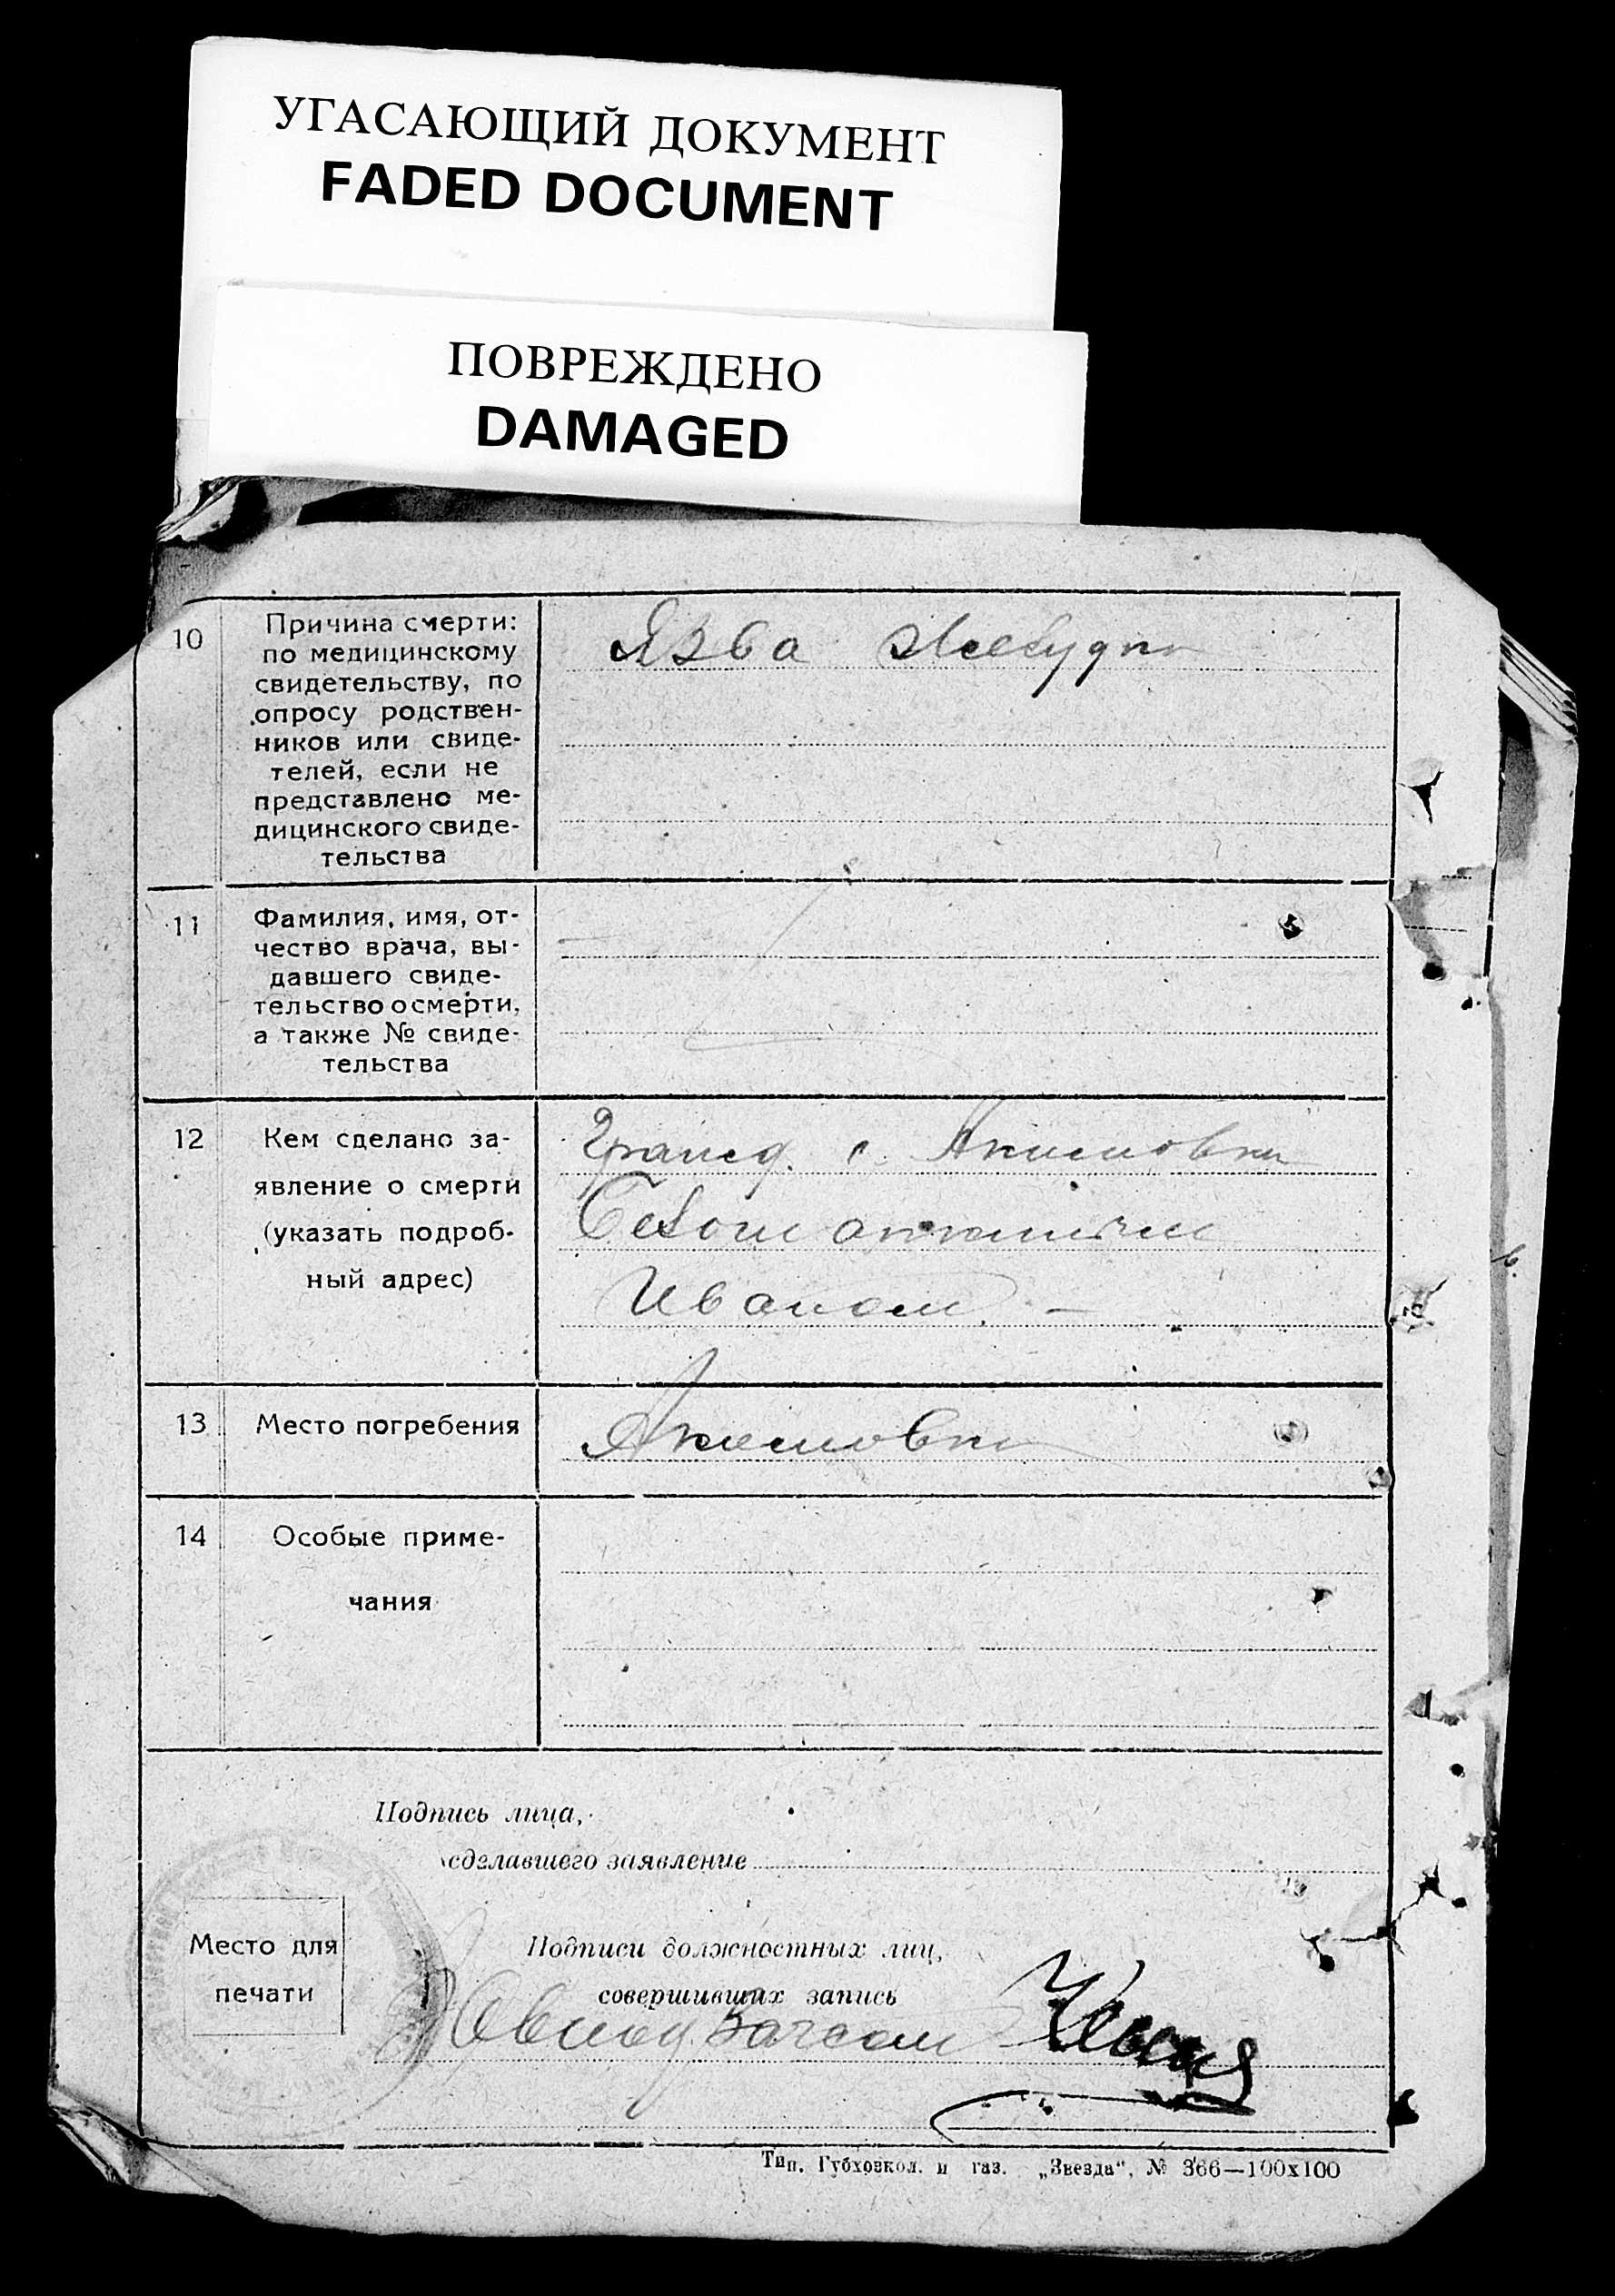 УГАСАЮЩИЙ ДОКУМЕНТ
FADED DOCUMENT
ПОВРЕЖДЕНО
DAMAGED
10
Причина смерти:
по медицинскому
свидетельству, по
опросу родствен-
ников или свиде-
телей, если не
представлено ме-
дицинского свиде-
тельства
Язва желудка
11
Фамилия, имя, от-
чество врача, вы-
давшего свиде-
тельство о смерти,
а также № свиде-
тельства
12
Кем сделано за-
явление о смерти
(указать подроб-
ный адрес)
Гражд. с. Акимовки
Иваном. —
13
Место погребения
Акимовка
14
Особые приме-
чания
Подпись лица,
сделавшего заявление
Место для
печати
Подписи должностных лиц,
совершивших запись
Тип. Губхозкол. и газ. „Звезда“, № 366—100х100